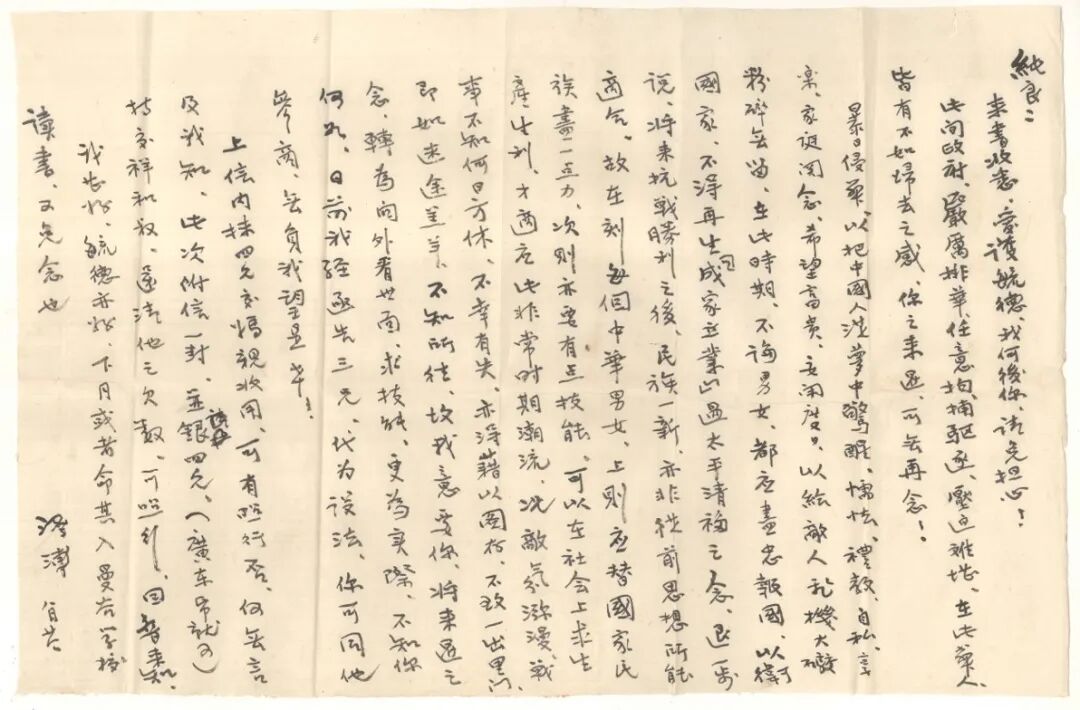 純良：
来書收悉、愛護毓德、我何後你、請免担心！
此间政府、嚴厲排華、任意拘捕驅逐、壓迫难堪、在此華人、
皆有不如歸去之感、你之来暹、可無再念！
暴日侵華、以把中國人從夢中驚醒、懦怯、禮教、自私、享
樂、家庭观念、希望富貴、安闲度日、以给敵人飛機大礮
粉碎無留、在此時期、不論男女、都应盡忠報國、以衛
國家、不得再生成家立業以过太平清福之念、退一步
说、将来抗戰勝利之後、民族一新、亦非從前思想所能
適合、故在刻每個中華男女、上則应替國家民
族盡一点力、次則亦要有点技能、可以在社会上求生
產生利、才適应此非常时期潮流、况敵氛渺漫、戰
事不知何日方休、不幸有失、亦得藉以圖存、不致一出里门、
即如迷途羔羊、不知所往、故我意要你、将来暹之
念、轉為向外看世面、求技能、更為实際、不知你
何如、日前我經逐去三元、代為設法、你可同他
参商、無負我望是幸！
上信内抹四元交媽親收用、可有照行否、何無言
及我知、此次附信一封、並銀四元、（廣东币就可）
持交祥和叔、還清他之欠数、可照行、回音来知、
我甚好、毓德亦好、下月或者命其入曼谷学校
讀書、又免念也